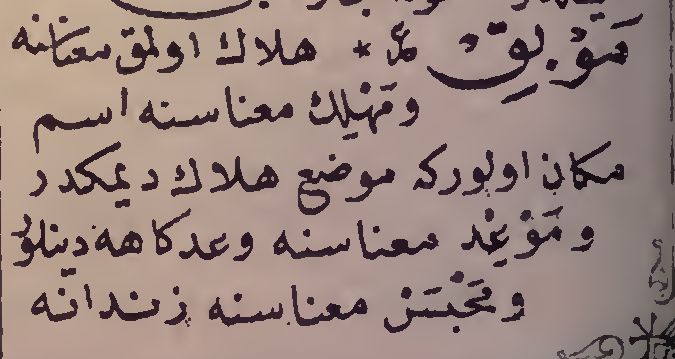 مَوْبِقٌ ع * هلاك اولمق معناسنه
ومَهْلِك معناسنه اسم
مكان اولوركه موضع هلاك ديمكدر
ومَوْعِد معناسنه وعدكاهه دينلور
ومَحْبَس معناسنه زندانه